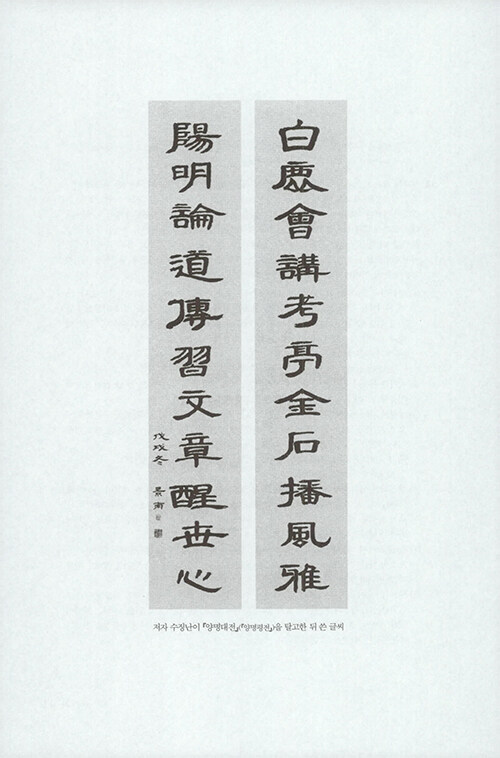 白鹿會講考亭金石播風雅
陽明論道傳習文章醒世心
戊戌冬 景南
저자 수징난이 『양명대전』(『양명평전』)을 탈고한 뒤 쓴 글씨